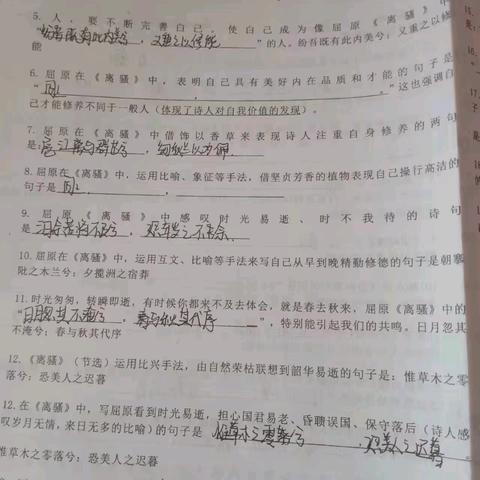 5. 人，要不断完善自己，使自己成为像屈原《离骚》中
"纷吾既有此内美兮，又重之以修能"的人。纷吾既有此内美兮；又重之以修
能
6. 屈原在《离骚》中，表明自己具有美好内在品质和才能的句子是
"同上。"这也强调自
己才能修养不同于一般人（体现了诗人对自我价值的发现）。
7. 屈原在《离骚》中借饰以香草来表现诗人注重自身修养的两句
是：扈江离与辟芷兮，纫秋兰以为佩。
8. 屈原在《离骚》中，运用比喻、象征等手法，借坚贞芳香的植物表现自己操行高洁的
句子是 同上，。
9. 屈原《离骚》中感叹时光易逝、时不我待的诗句
是 汩余若将不及兮，恐年岁之不吾与。
10. 屈原在《离骚》中，运用互文、比喻等手法来写自己从早到晚精勤修德的句子是朝搴
阰之木兰兮：夕揽洲之宿莽
11. 时光匆匆，转瞬即逝，有时候你都来不及去体会，就是春去秋来，屈原《离骚》中的
"日月忽其不淹兮，春与秋其代序"，特别能引起我们的共鸣。日月忽其
不淹兮：春与秋其代序
12. 《离骚》（节选）运用比兴手法，由自然荣枯联想到韶华易逝的句子是：惟草木之零
落兮：恐美人之迟暮
12. 在《离骚》中，写屈原看到时光易逝，担心国君易老、昏聩误国、保守落后（诗人感
叹岁月无情，来日无多的比喻）的句子是 惟草木之零落兮，恐美人之迟暮
惟草木之零落兮：恐美人之迟暮